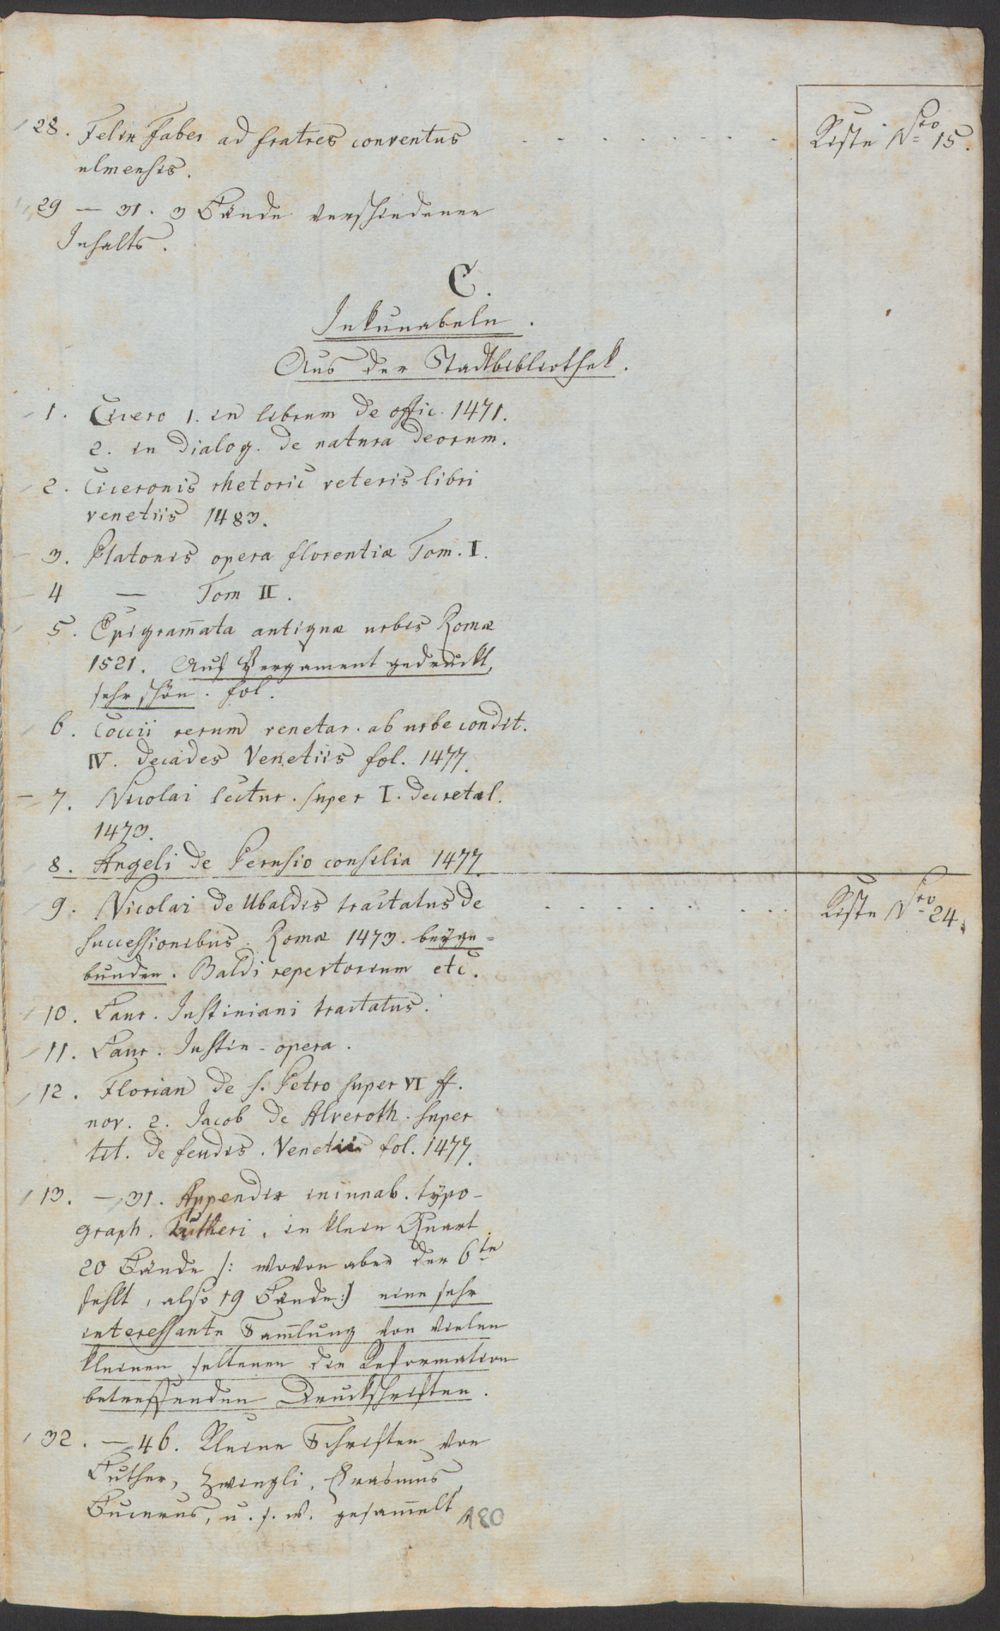 28. Felix Faber ad fratres conventus
ulmensis. - - - - - - - - Kiste Nro 15.
29 — 31. 3 Bände verschiedener
Inhalts.
C.
Inkunabeln.
Aus der Stadtbibliothek.
1. Cicero 1. in librum de offic. 1471.
2. in dialog. de natura deorum.
2. Ciceronis rhetoric veteris libri
venetiis 1483.
3. Platonis opera florentiæ Tom. I.
4 — Tom II.
5. Epigram̄ata antiquæ urbis Romæ
1521. Auf Pergament gedruckt,
sehr schön. fol.
6. Coccii rerum venetar. ab urbe condit.
IV. decades Venetiis fol. 1477.
7. Nicolai lectur. super I. decretal.
1473.
8. Angeli de Perusio consilia 1477.
9. Nicolai de Ubaldis tractatus de - - - - - - - - Kiste Nro 24.
successionibus. Romæ 1473. beyge-
bunden. Baldi repertorium etc.
10. Laur. Justiniani tractatus.
11. Laur. Justin - opera.
12. Florian de s. Petro super VI ff.
nov. 2. Jacob de Alveroth. super
tit. de feudis. Venetiis fol. 1477.
13. — 31. Appendix incunab. typo-
graph. Lutheri, in klein Quart
20 Bände /: wovon aber der 6te
fehlt, also 19 Bände:/ eine sehr
interessante Sam̄lung von vielen
kleinen seltenen die Reformation
betreffenden Druckschriften.
32. — 46. Kleine Schriften von
Luther, Zwingli, Erasmus,
Bucerus, u. s. w. gesam̄elt
180